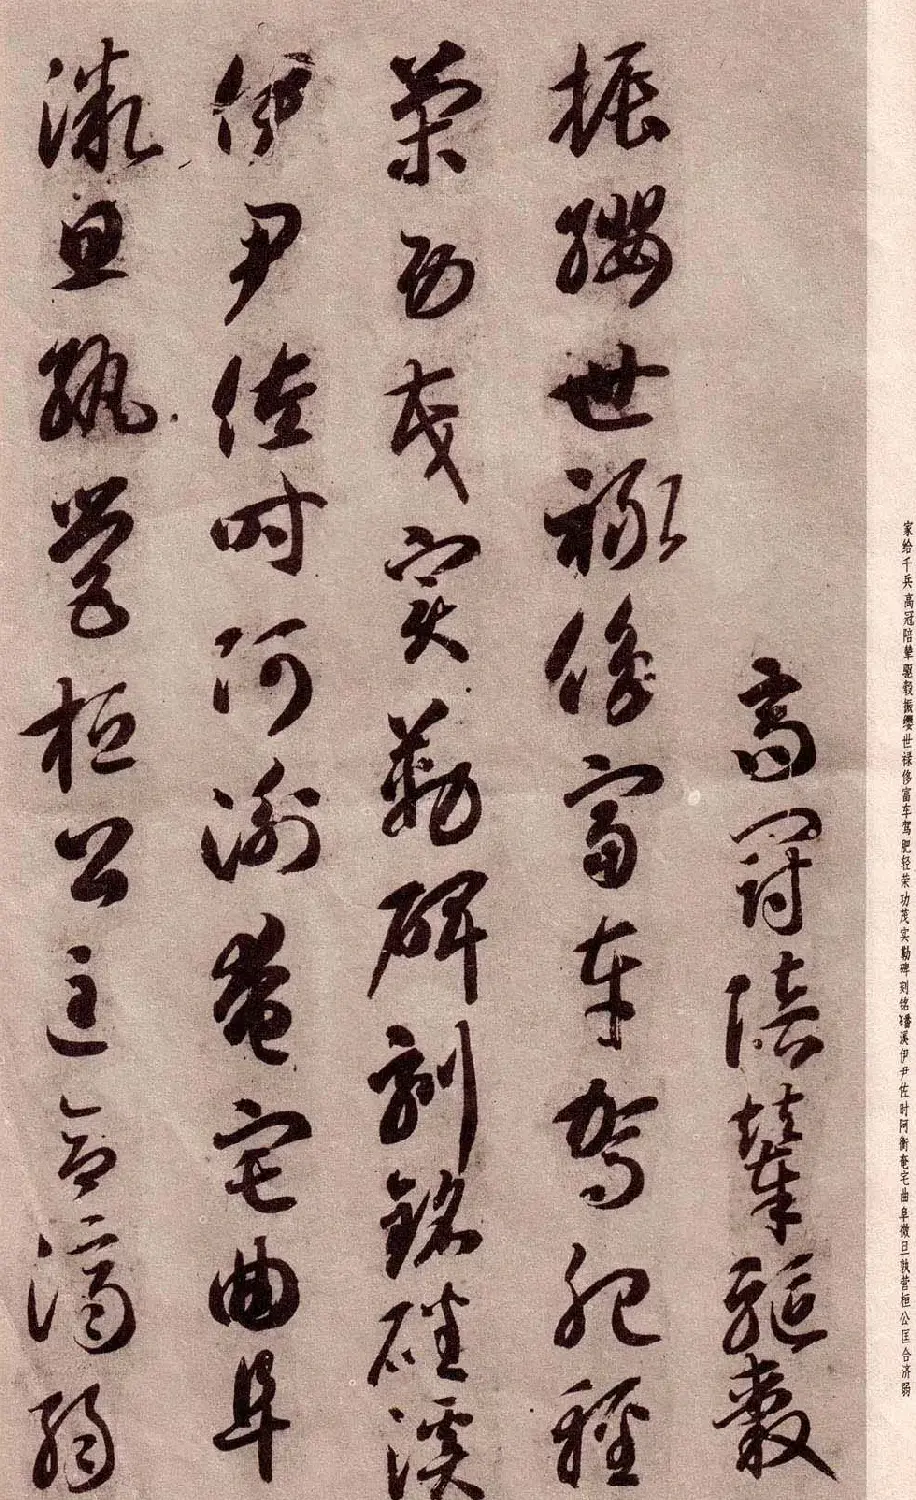 高冠陪輦驅轂
振纓世祿侈富車駕肥輕
策功茂實勒碑刻銘磻溪
伊尹佐時阿衡奄宅曲阜
微旦孰營桓公匡合濟弱
家给千兵高冠陪辇驱毂振缨世禄侈富车驾肥轻荣功茂实勒碑刻铭磻溪伊尹佐时阿衡奄宅曲阜微旦孰营桓公匡合济弱